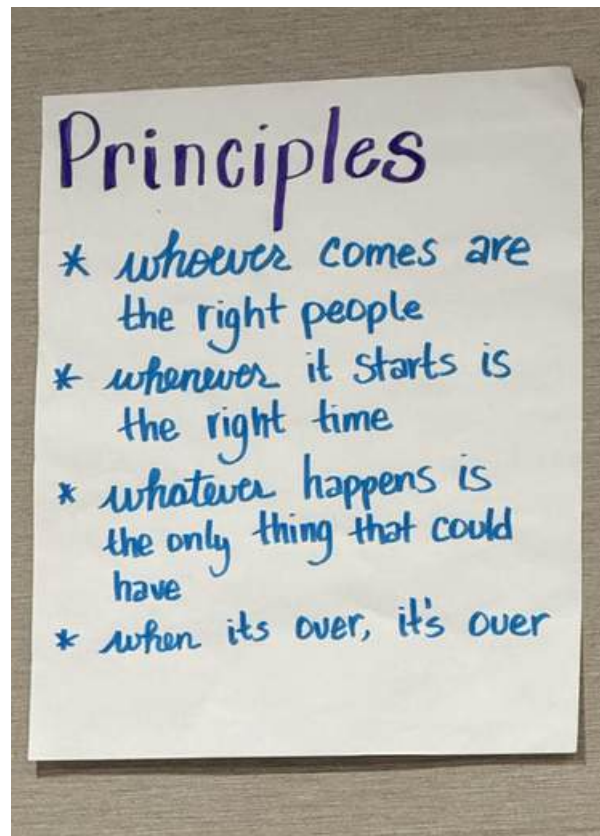 Principles
* whoever comes are
the right people
* whenever it starts is
the right time
* whatever happens is
the only thing that could
have
* when its over, it's over